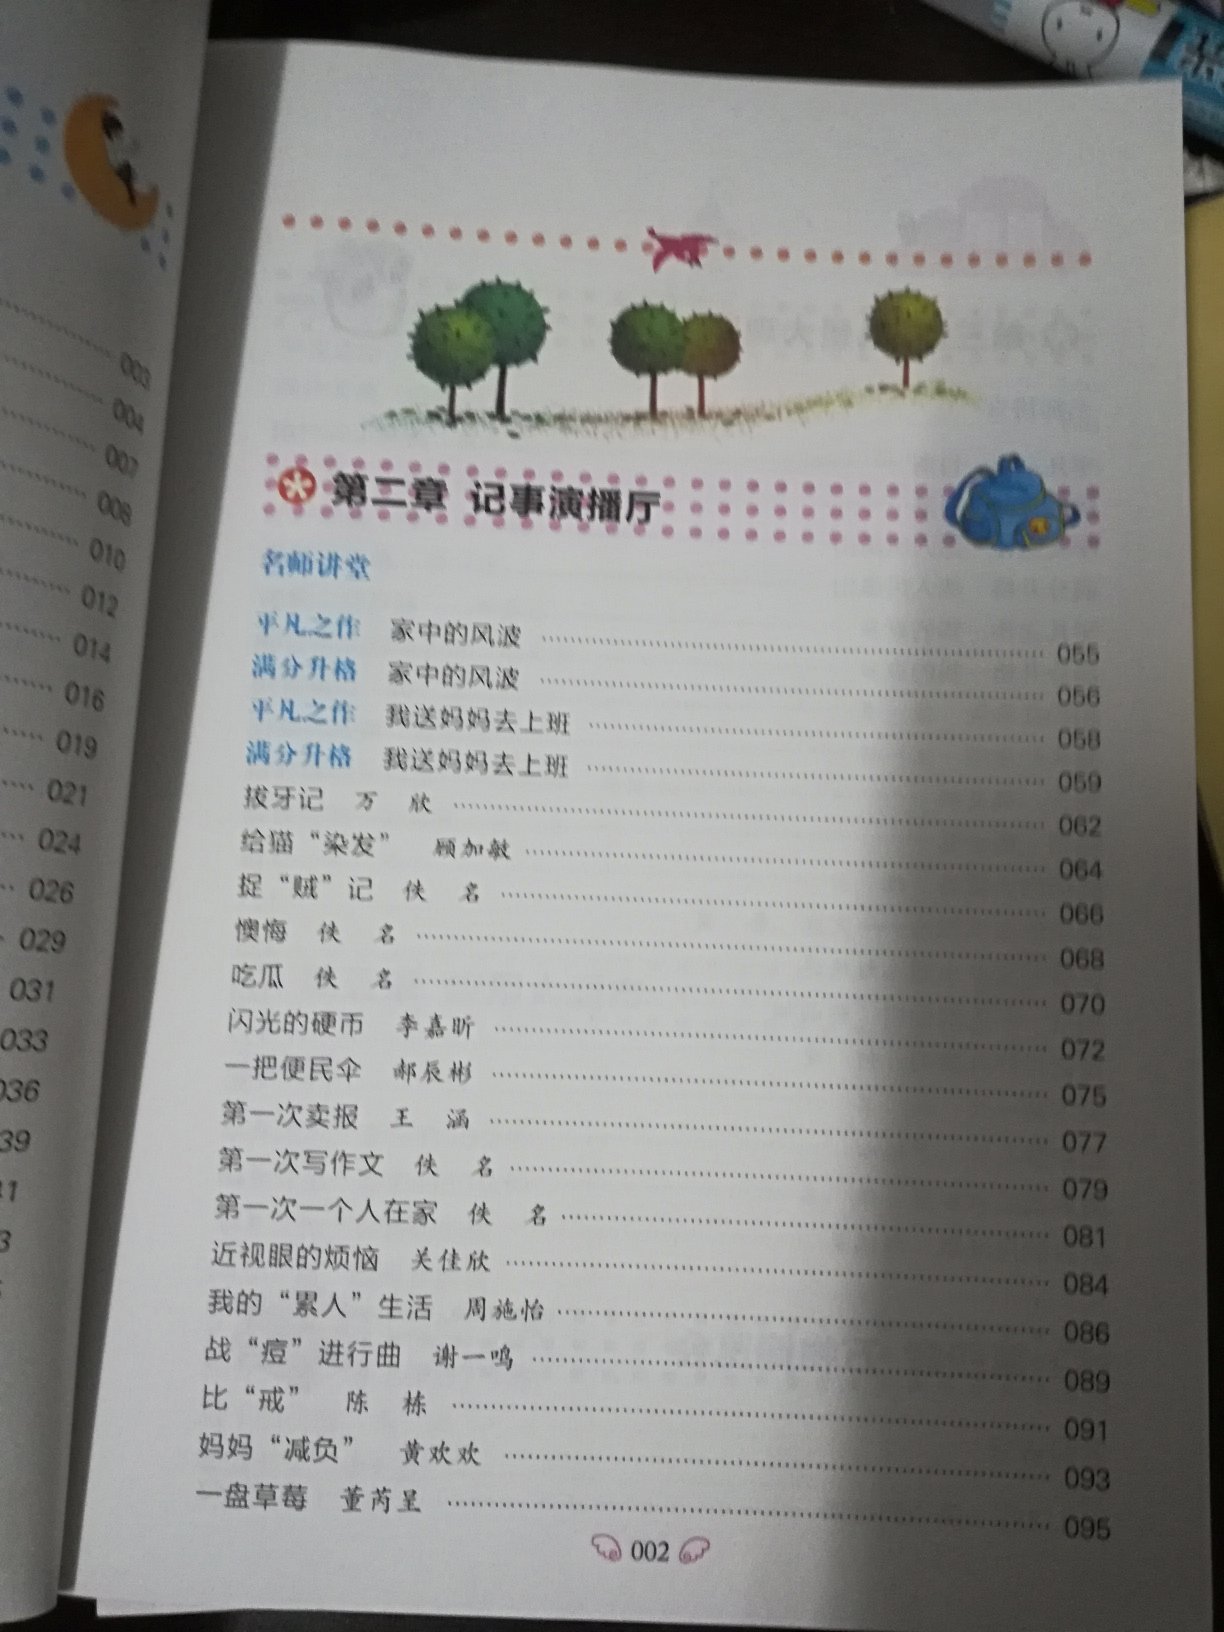 003
004
007
008
010
012
014
016
019
021
024
026
029
031
033
036
39
第二章 记事演播厅
名师讲堂
平凡之作 家中的风波 055
满分升格 家中的风波 056
平凡之作 我送妈妈去上班 058
满分升格 我送妈妈去上班 059
拔牙记 万 欣 062
给猫“染发” 顾加敏 064
捉“贼”记 佚 名 066
懊悔 佚 名 068
吃瓜 佚 名 070
闪光的硬币 李嘉昕 072
一把便民伞 郝辰彬 075
第一次卖报 王 涵 077
第一次写作文 佚 名 079
第一次一个人在家 佚 名 081
近视眼的烦恼 关佳欣 084
我的“累人”生活 周施怡 086
战“痘”进行曲 谢一鸣 089
比“戒” 陈 栋 091
妈妈“减负” 黄欢欢 093
一盘草莓 董芮呈 095
002